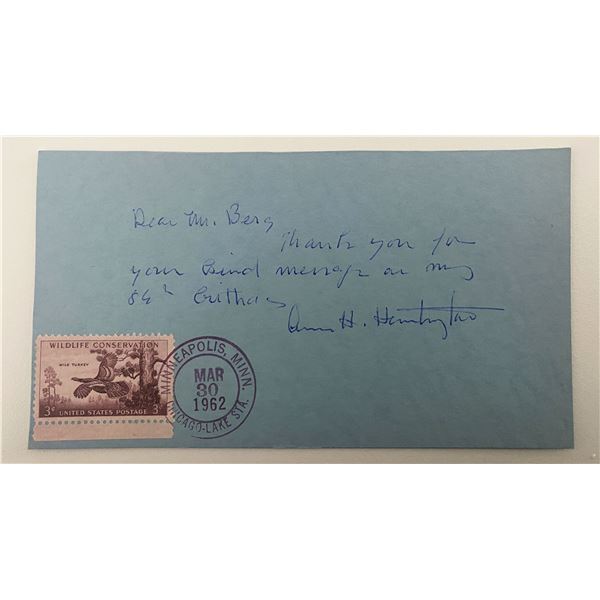 Dear Mr. Berg
Thank you for
your kind message on my
86th birthday
H.
WILDLIFE CONSERVATION
WILD TURKEY
3¢ UNITED STATES POSTAGE 3¢
MINNEAPOLIS, MINN.
MAR
30
1962
CHICAGO-LAKE STA.